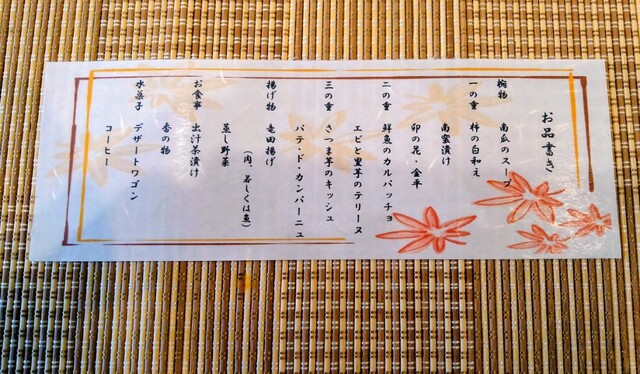 お品書き
椀物 南瓜のスープ
一の重 柿の白和え
南蜜漬け
卯の花・金平
二の重 鮮魚のカルパッチョ
エビと里芋のテリーヌ
三の重 さつま芋のキッシュ
パテ・ド・カンパーニュ
揚げ物 竜田揚げ
(肉、若しくは魚)
蒸し野菜
お食事 出汁茶漬け
香の物
水菓子 デザートワゴン
コーヒー